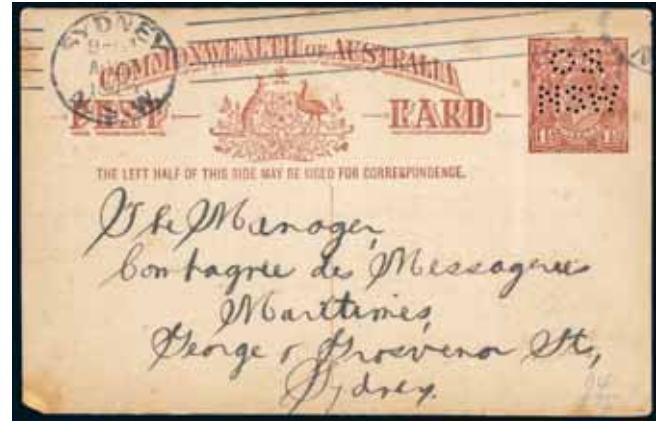 SYDNEY
COMMONWEALTH OF AUSTRALIA
POST CARD
OS
NSW
THE LEFT HALF OF THIS SIDE MAY BE USED FOR CORRESPONDENCE.
The Manager,
Compagnie des Messageries
Maritimes,
George & Grosvenor Sts,
Sydney.